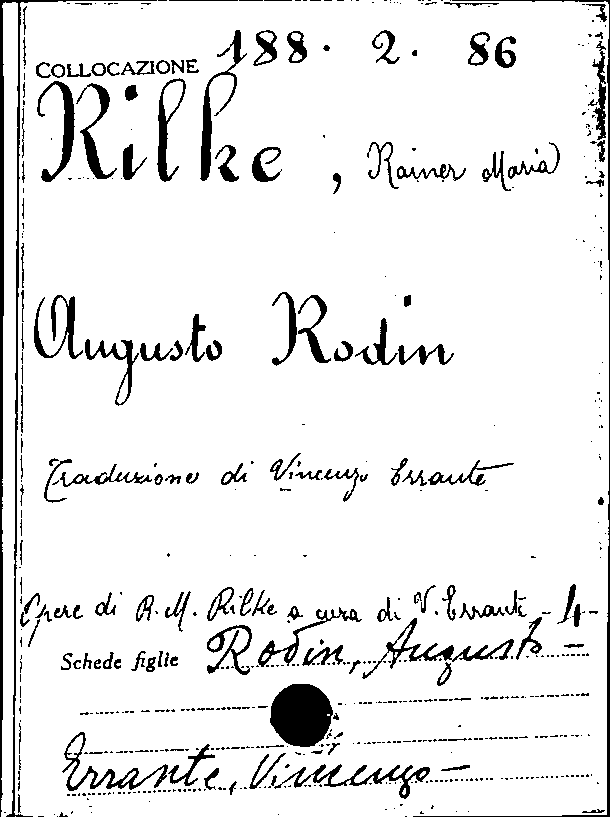 COLLOCAZIONE 188. 2. 86
Rilke, Rainer Maria
Augusto Rodin
Traduzione di Vincenzo Errante
Opere di R. M. Rilke a cura di V. Errante - 4 -
Schede figlie Rodin, Augusto -
Errante, Vincenzo -